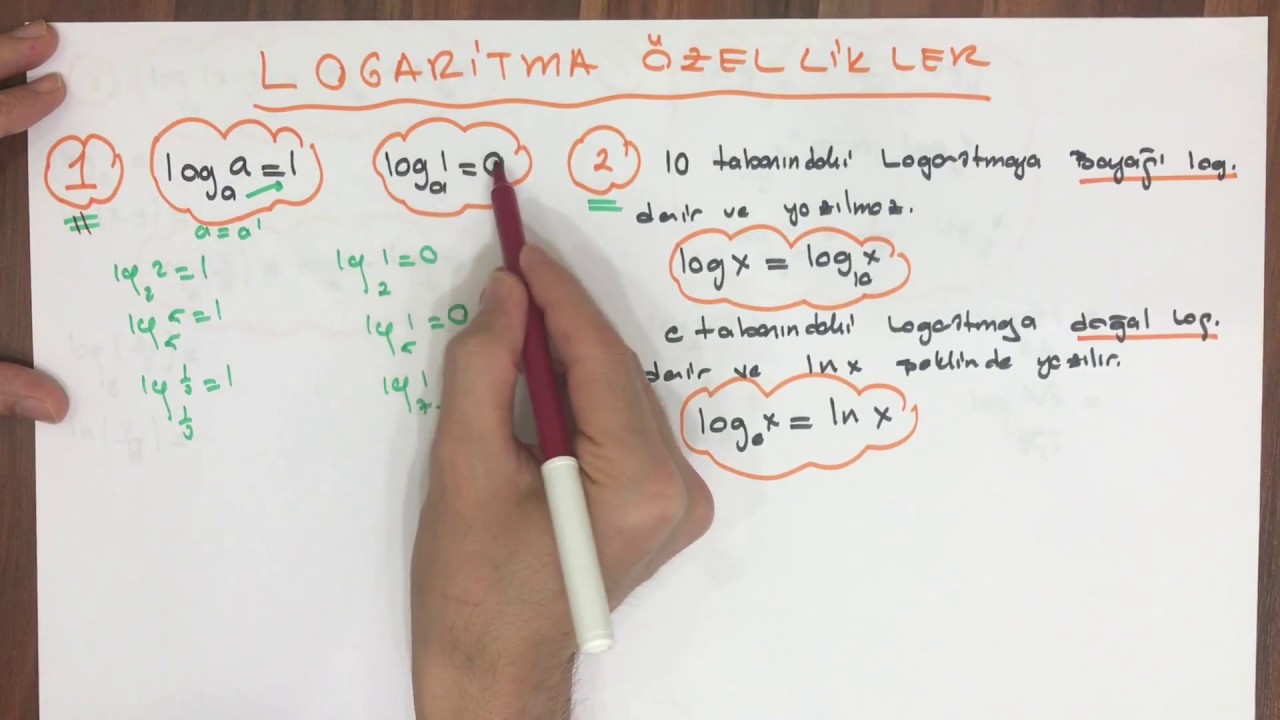 LOGARİTMA ÖZELLİKLER
1 logₐa = 1
a = a¹
log₂2 = 1
log₅5 = 1
log
1/3
1/3 = 1
logₐ1 = 0
log₂1 = 0
log₅1 = 0
log₇1
2 10 tabanındaki Logaritmaya Bayağı log.
denir ve yazılmaz.
logx = log₁₀x
e tabanındaki Logaritmaya doğal log.
denir ve lnx şeklinde yazılır.
logₑx = ln x